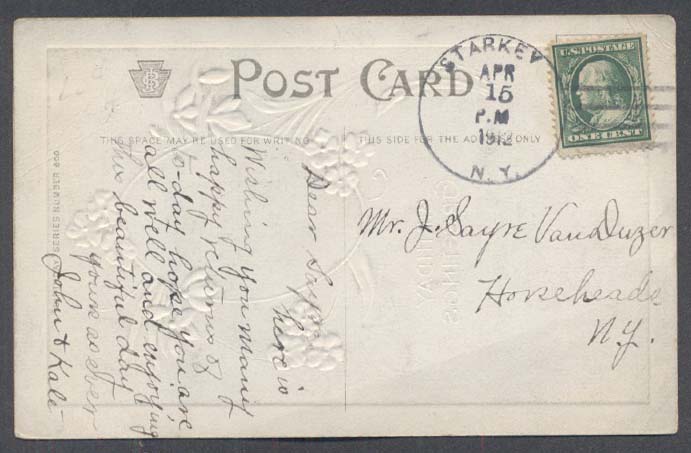 POST CARD
THIS SPACE MAY BE USED FOR WRITING
THIS SIDE FOR THE ADDRESS ONLY
STARKEY
APR
15
P.M
1912
N.Y.
U.S. POSTAGE
ONE CENT
SERIES NUMBER 600
Dear Sayre here is
Wishing you many
happy returns of
to-day hope you are
all well and enjoying
this beautiful day
yours as Ever
John & Kate
Mr. J. Sayre VanDuzer
Horseheads
N.Y.